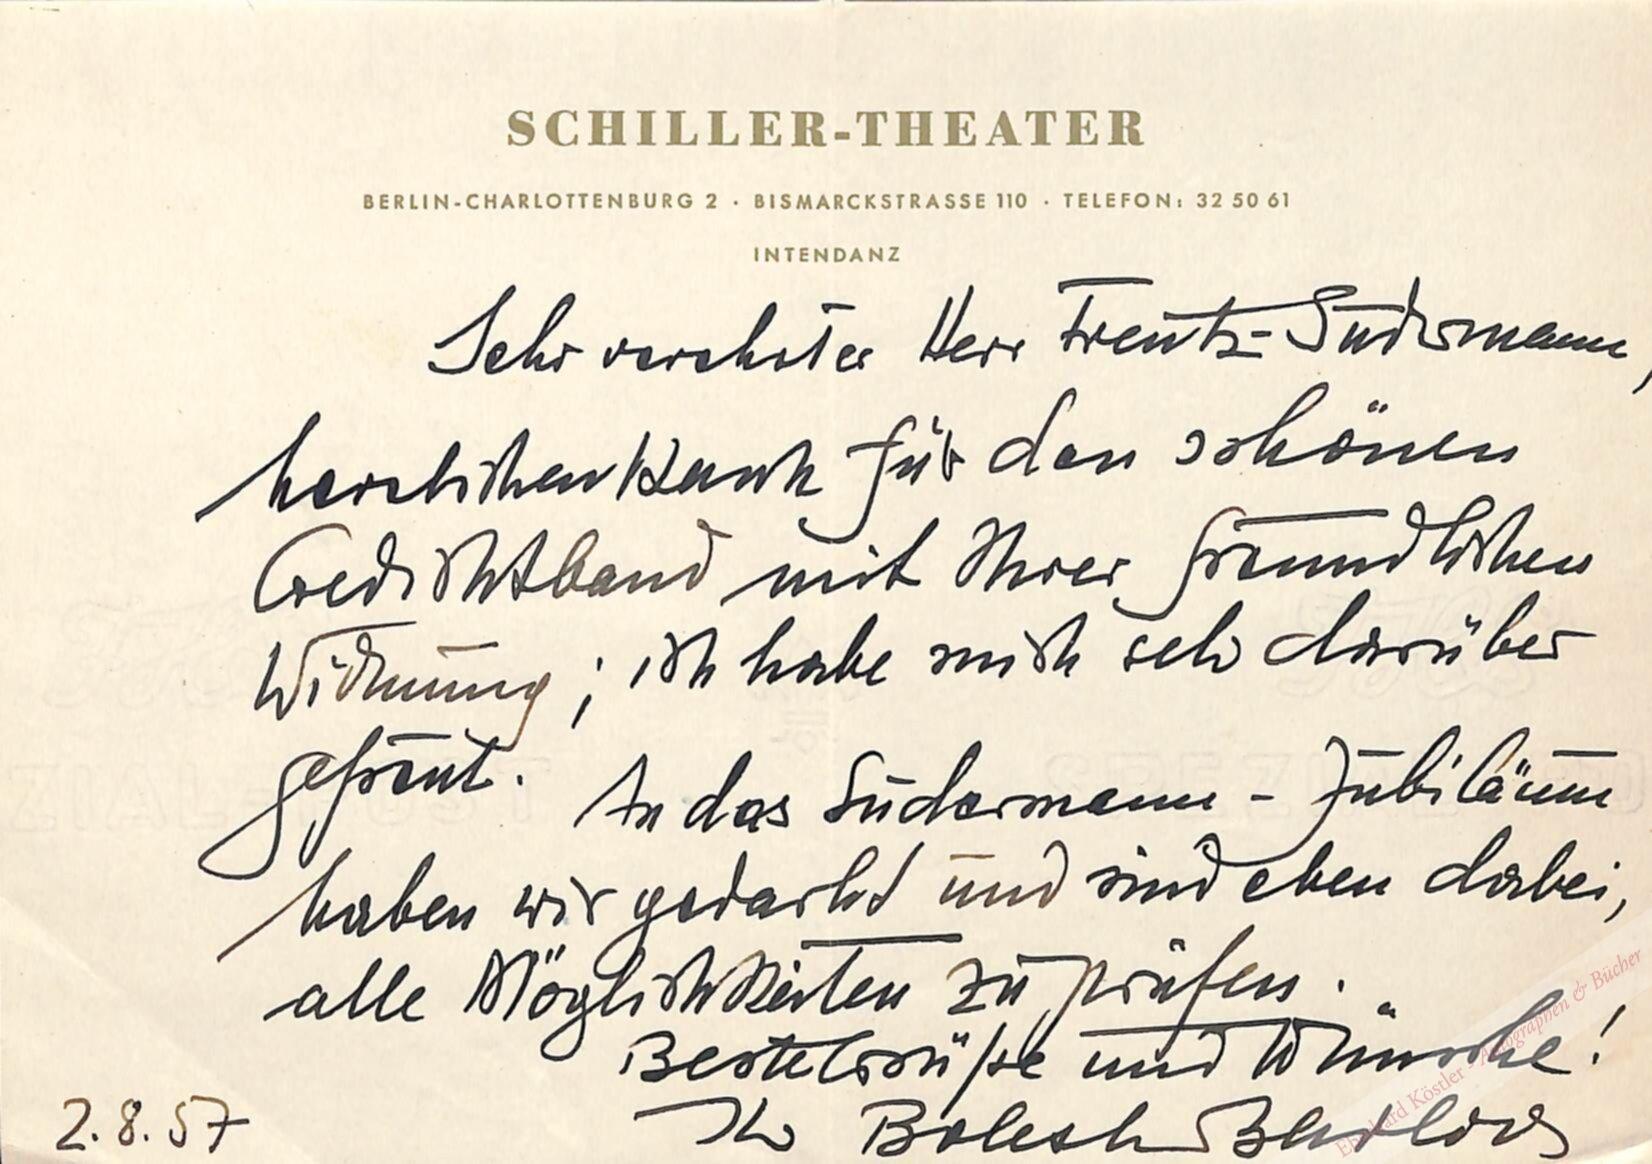 SCHILLER-THEATER
BERLIN-CHARLOTTENBURG 2 · BISMARCKSTRASSE 110 · TELEFON: 32 50 61
INTENDANZ
Sehr verehrter Herr Frentz-Sudermann,
herzlichen Dank für den schönen
Gedichtband mit Ihrer freundlichen
Widmung; ich habe mich sehr darüber
gefreut. An das Sudermann-Jubiläum
haben wir gedacht und sind eben dabei,
alle Möglichkeiten zu prüfen.
Beste Grüße und Wünsche!
2.8.57 Ihr Boleslaw Barlog
Eberhard Köstler - Autographen & Bücher